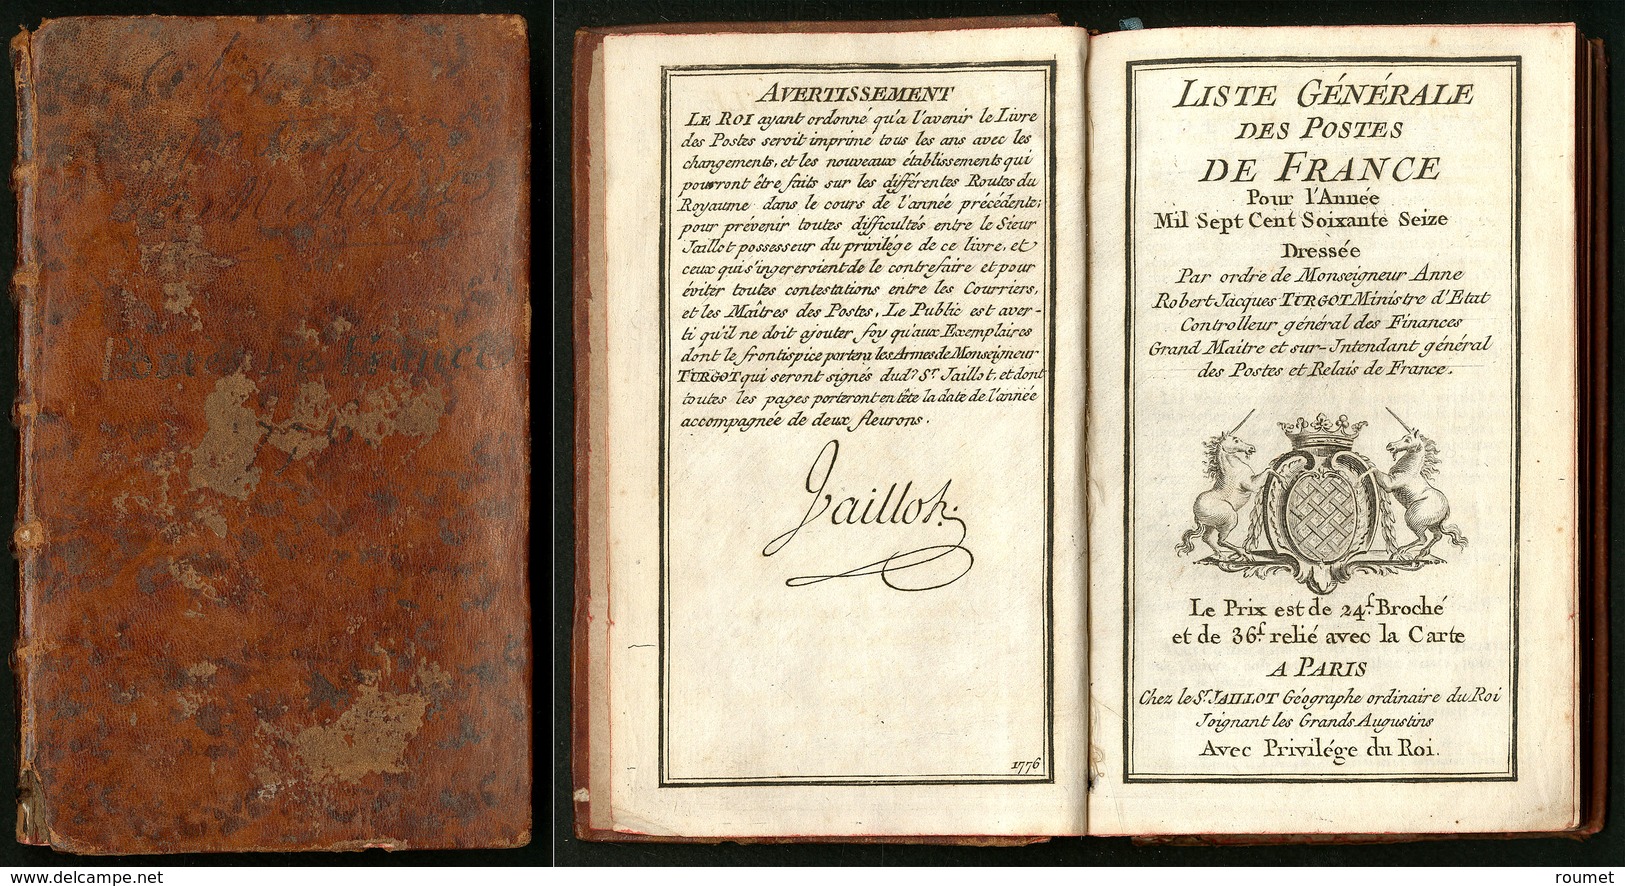 AVERTISSEMENT
LE ROI ayant ordonné qu'a l'avenir le Livre
des Postes seroit imprimé tous les ans avec les
changements, et les nouveaux établissements qui
pourront être faits sur les différentes Routes du
Royaume dans le cours de l'année précédente;
pour prévenir toutes difficultés entre le Sieur
Jaillot possesseur du privilége de ce livre, et
ceux qui s'ingereroient de le contrefaire et pour
éviter toutes contestations entre les Courriers,
et les Maîtres des Postes, Le Public est aver-
ti qu'il ne doit ajouter foy qu'aux Exemplaires
dont le frontispice portera les Armes de Monseigneur
TURGOT qui seront signés dud? Sr. Jaillot, et dont
toutes les pages porteront en tête la date de l'année
accompagnée de deux fleurons.
Jaillot.
1776
LISTE GÉNÉRALE
DES POSTES
DE FRANCE
Pour l'Année
Mil Sept Cent Soixante Seize
Dressée
Par ordre de Monseigneur Anne
Robert Jacques TURGOT Ministre d'Etat
Controlleur général des Finances
Grand Maitre et sur-Intendant général
des Postes et Relais de France.
Le Prix est de 24f. Broché
et de 36f. relié avec la Carte
A PARIS
Chez le Sr. JAILLOT Géographe ordinaire du Roi
Joignant les Grands Augustins
Avec Privilége du Roi.
www.delcampe.net
roumet